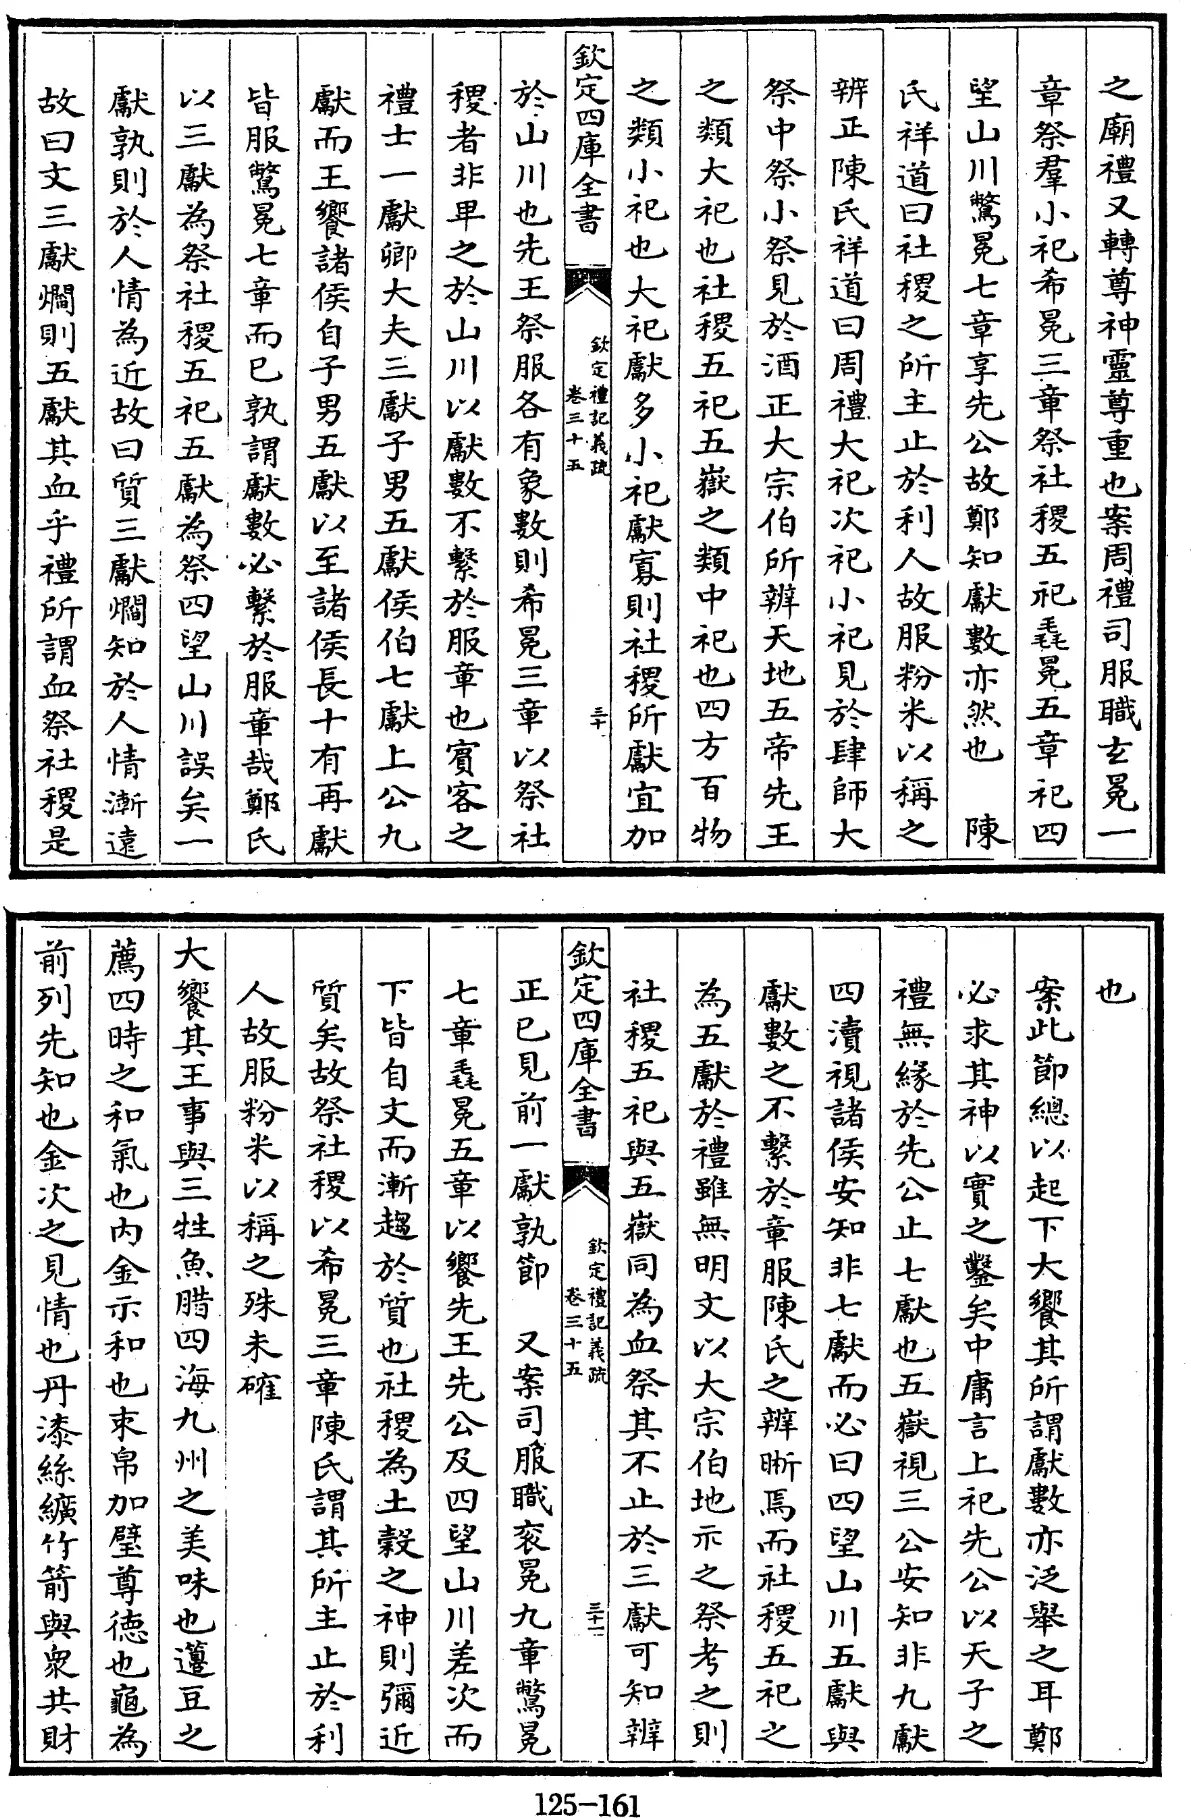 之廟禮又轉尊神靈尊重也案周禮司服職玄冕一
章祭羣小祀希冕三章祭社稷五祀毳冕五章祀四
望山川驚冕七章享先公故鄭知獻數亦然也　陳
氏祥道曰社稷之所主止於利人故服粉米以稱之
辨正陳氏祥道曰周禮大祀次祀小祀見於肆師大
祭中祭小祭見於酒正大宗伯所辨天地五帝先王
之類大祀也社稷五祀五嶽之類中祀也四方百物
之類小祀也大祀獻多小祀獻寡則社稷所獻宜加
欽定四庫全書　欽定禮記義疏　卷三十五　三十
於山川也先王祭服各有象數則希冕三章以祭社
稷者非卑之於山川以獻數不繫於服章也賓客之
禮士一獻卿大夫三獻子男五獻侯伯七獻上公九
獻而王饗諸侯自子男五獻以至諸侯長十有再獻
皆服驚冕七章而已孰謂獻數必繫於服章哉鄭氏
以三獻為祭社稷五祀五獻為祭四望山川誤矣一
獻孰則於人情為近故曰質三獻爓知於人情漸遠
故曰文三獻爓則五獻其血乎禮所謂血祭社稷是
也
案此節總以起下大饗其所謂獻數亦泛舉之耳鄭
必求其神以實之鑿矣中庸言上祀先公以天子之
禮無緣於先公止七獻也五嶽視三公安知非九獻
四瀆視諸侯安知非七獻而必曰四望山川五獻與
獻數之不繫於章服陳氏之辨晰焉而社稷五祀之
為五獻於禮雖無明文以大宗伯地示之祭考之則
社稷五祀與五嶽同為血祭其不止於三獻可知辨
欽定四庫全書　欽定禮記義疏　卷三十五　三十一
正已見前一獻孰節　又案司服職衮冕九章驚冕
七章毳冕五章以饗先王先公及四望山川差次而
下皆自文而漸趨於質也社稷為土穀之神則彌近
質矣故祭社稷以希冕三章陳氏謂其所主止於利
人故服粉米以稱之殊未確
大饗其王事與三牲魚腊四海九州之美味也籩豆之
薦四時之和氣也内金示和也束帛加璧尊德也龜為
前列先知也金次之見情也丹漆絲纊竹箭與衆共財
125-161